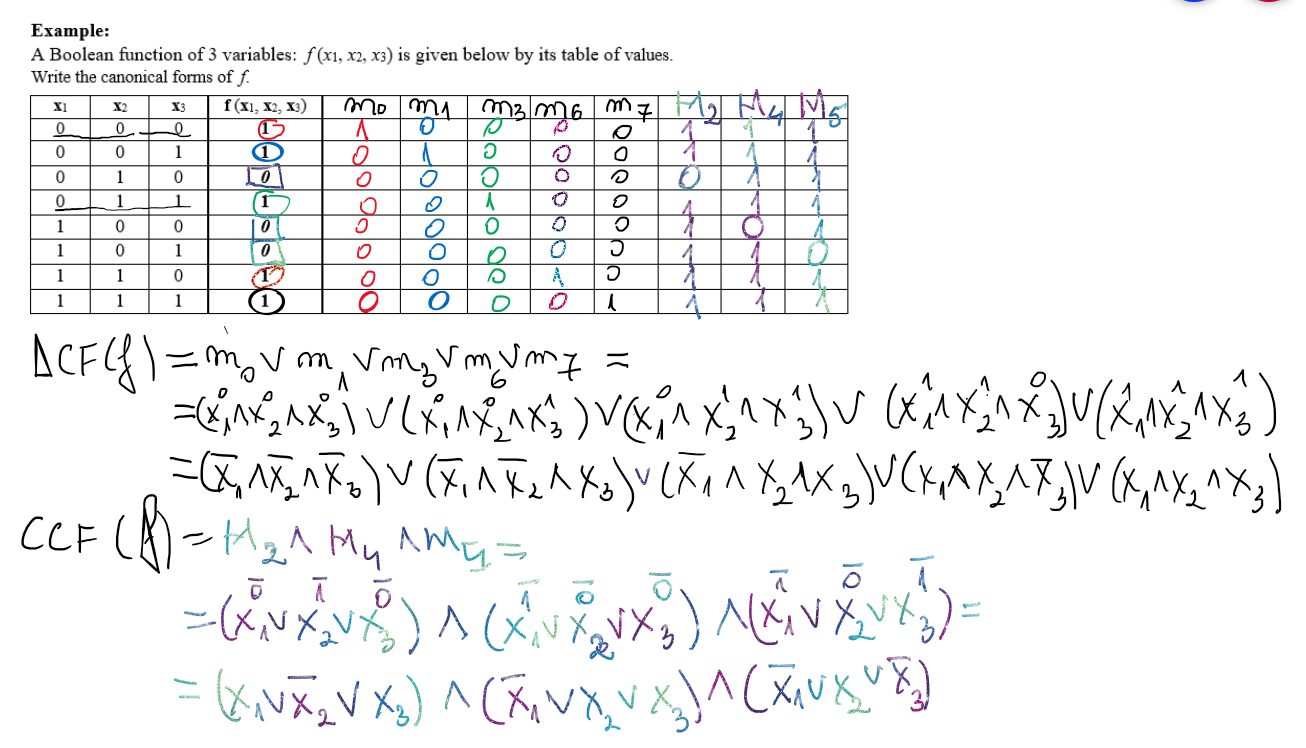 Example:
A Boolean function of 3 variables: f (x1, x2, x3) is given below by its table of values.
Write the canonical forms of f.
x1 x2 x3 f (x1, x2, x3) m0 m1 m3 m6 m7 M2 M4 M5
0 0 0 1 1 0 0 0 0 1 1 1
0 0 1 1 0 1 0 0 0 1 1 1
0 1 0 0 0 0 0 0 0 0 1 1
0 1 1 1 0 0 1 0 0 1 1 1
1 0 0 0 0 0 0 0 0 1 0 1
1 0 1 0 0 0 0 0 0 1 1 0
1 1 0 1 0 0 0 1 0 1 1 1
1 1 1 1 0 0 0 0 1 1 1 1
DCF(f) = m₀ ∨ m₁ ∨ m₃ ∨ m₆ ∨ m₇ =
= (x₁⁰ ∧ x₂⁰ ∧ x₃⁰) ∨ (x₁⁰ ∧ x₂⁰ ∧ x₃¹) ∨ (x₁⁰ ∧ x₂¹ ∧ x₃¹) ∨ (x₁¹ ∧ x₂¹ ∧ x₃⁰) ∨ (x₁¹ ∧ x₂¹ ∧ x₃¹)
= (x̅₁ ∧ x̅₂ ∧ x̅₃) ∨ (x̅₁ ∧ x̅₂ ∧ x₃) ∨ (x̅₁ ∧ x₂ ∧ x₃) ∨ (x₁ ∧ x₂ ∧ x̅₃) ∨ (x₁ ∧ x₂ ∧ x₃)
CCF (f) = M₂ ∧ M₄ ∧ M₅ =
= (x₁^0̅ ∨ x₂^1̅ ∨ x₃^0̅) ∧ (x₁^1̅ ∨ x₂^0̅ ∨ x₃^0̅) ∧ (x₁^1̅ ∨ x₂^0̅ ∨ x₃^1̅) =
= (x₁ ∨ x̅₂ ∨ x₃) ∧ (x̅₁ ∨ x₂ ∨ x₃) ∧ (x̅₁ ∨ x₂ ∨ x̅₃)